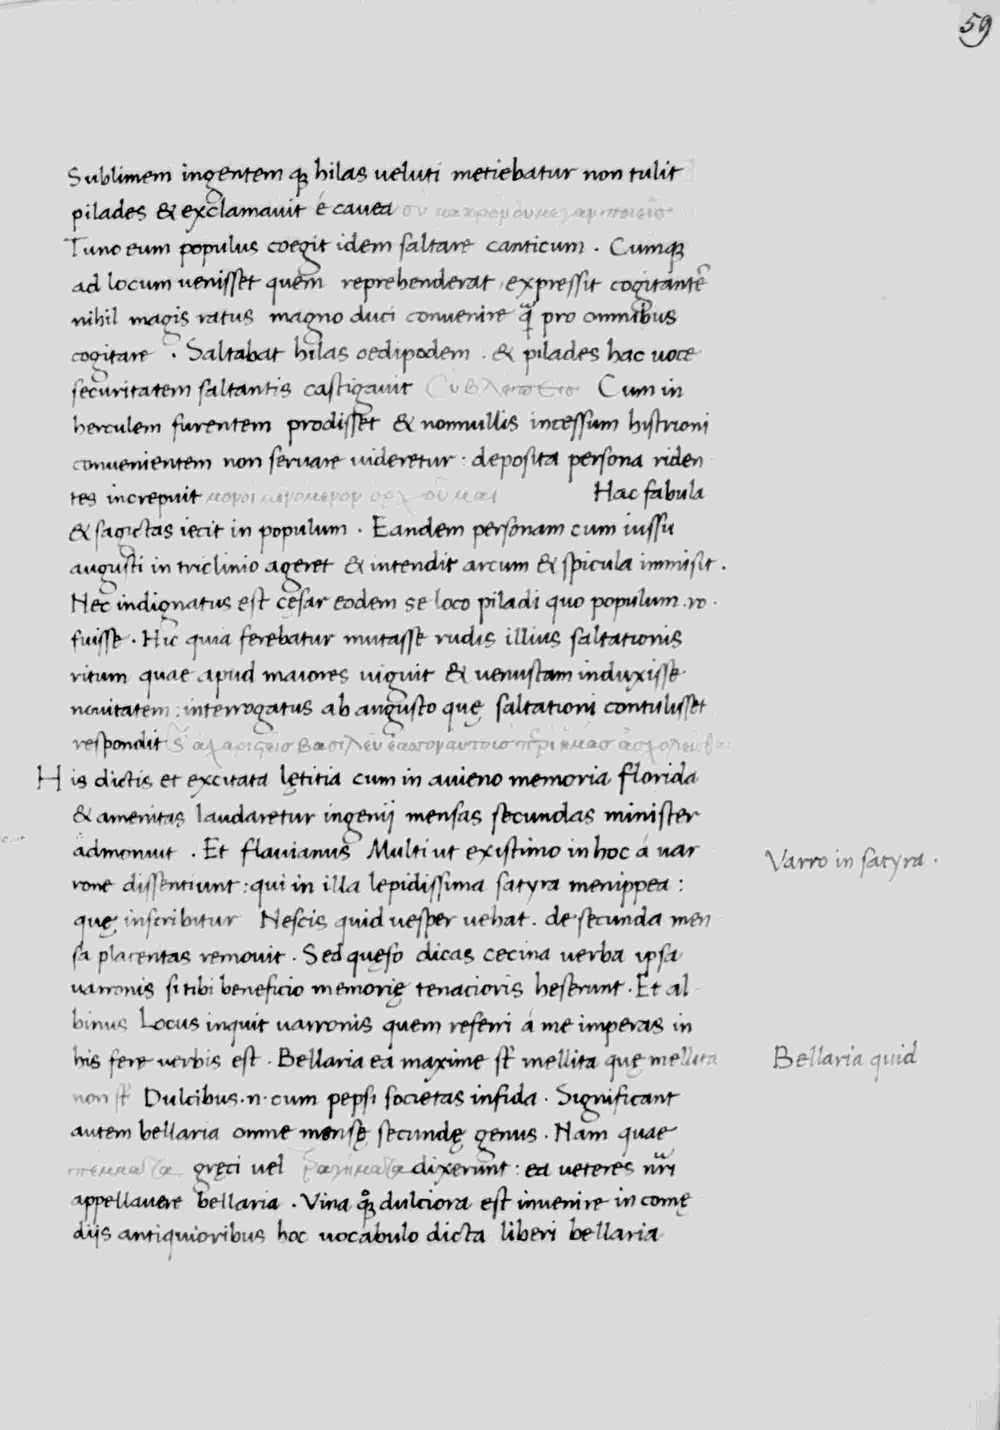 59
Sublimem ingentem q; hilas ueluti metiebatur non tulit
pilades & exclamauit é cauea σὺ μακρον ου μεγαν ποιεῖσ
Tunc eum populus coegit idem saltare canticum . Cumq;
ad locum uenisset quem reprehenderat expressit cogitantē
nihil magis ratus magno duci conuenire q̃ pro omnibus
cogitare . Saltabat hilas oedipodem . & pilades hac uoce
securitatem saltantis castigauit Cum in
herculem furentem prodisset & nonnullis incessum histrioni
conuenientem non seruare uideretur : deposita persona riden
tes increpuit μοροι ορχοῦμαι Hac fabula
& sagictas iecit in populum . Eandem personam cum iussu
augusti in triclinio ageret & intendit arcum & spicula immisit .
Nec indignatus est cęsar eodem se loco piladi quo populum .ro.
fuisse . Hic quia ferebatur mutasse rudis illius saltationis
ritum quae apud maiores uiguit & uenustam induxisse
nouitatem : interrogatus ab augusto quę saltationi contulisset
respondit
His dictis et excitata lętitia cum in auieno memoria florida
& amenitas laudaretur ingenij mensas secundas minister
admonuit . Et flauianus Multi ut existimo in hoc á uar
Varro in satyra .
rone dissentiunt : qui in illa lepidissima satyra menippea :
quę inscribitur Nescis quid uesper uehat . de secunda men
sa placentas remouit . Sed quęso dicas cecina uerba ipsa
uarronis si tibi beneficio memorię tenacioris heserunt . Et al
binus Locus inquit uarronis quem referri á me imperas in
his fere uerbis est . Bellaria ea maxime st̃ mellita quę mellita
Bellaria quid
non st̃ Dulcibus .n. cum pepsi societas infida . Significant
autem bellaria omne mensę secundę genus . Nam quae
πέμματα gręci uel τραγήματα dixerunt : ea ueteres nr̃i
appellauere bellaria . Vina q; dulciora est inuenire in comę
diis antiquioribus hoc uocabulo dicta liberi bellaria